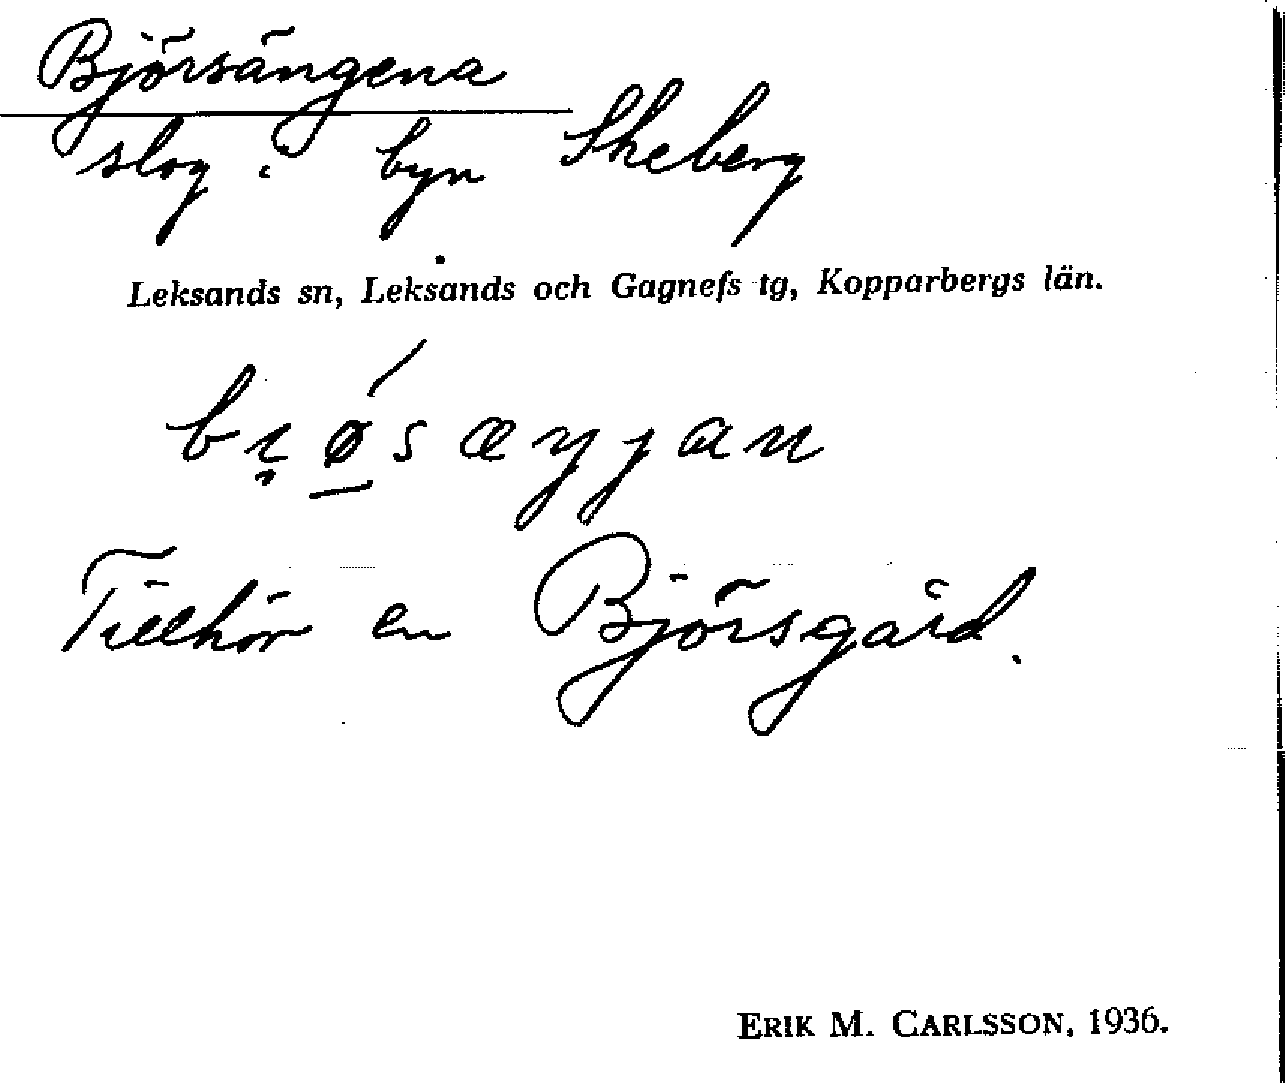 Björsängena
slog i byn Skeberg
Leksands sn, Leksands och Gagnefs tg, Kopparbergs län.
Tillhör en Björsgård.
ERIK M. CARLSSON, 1936.